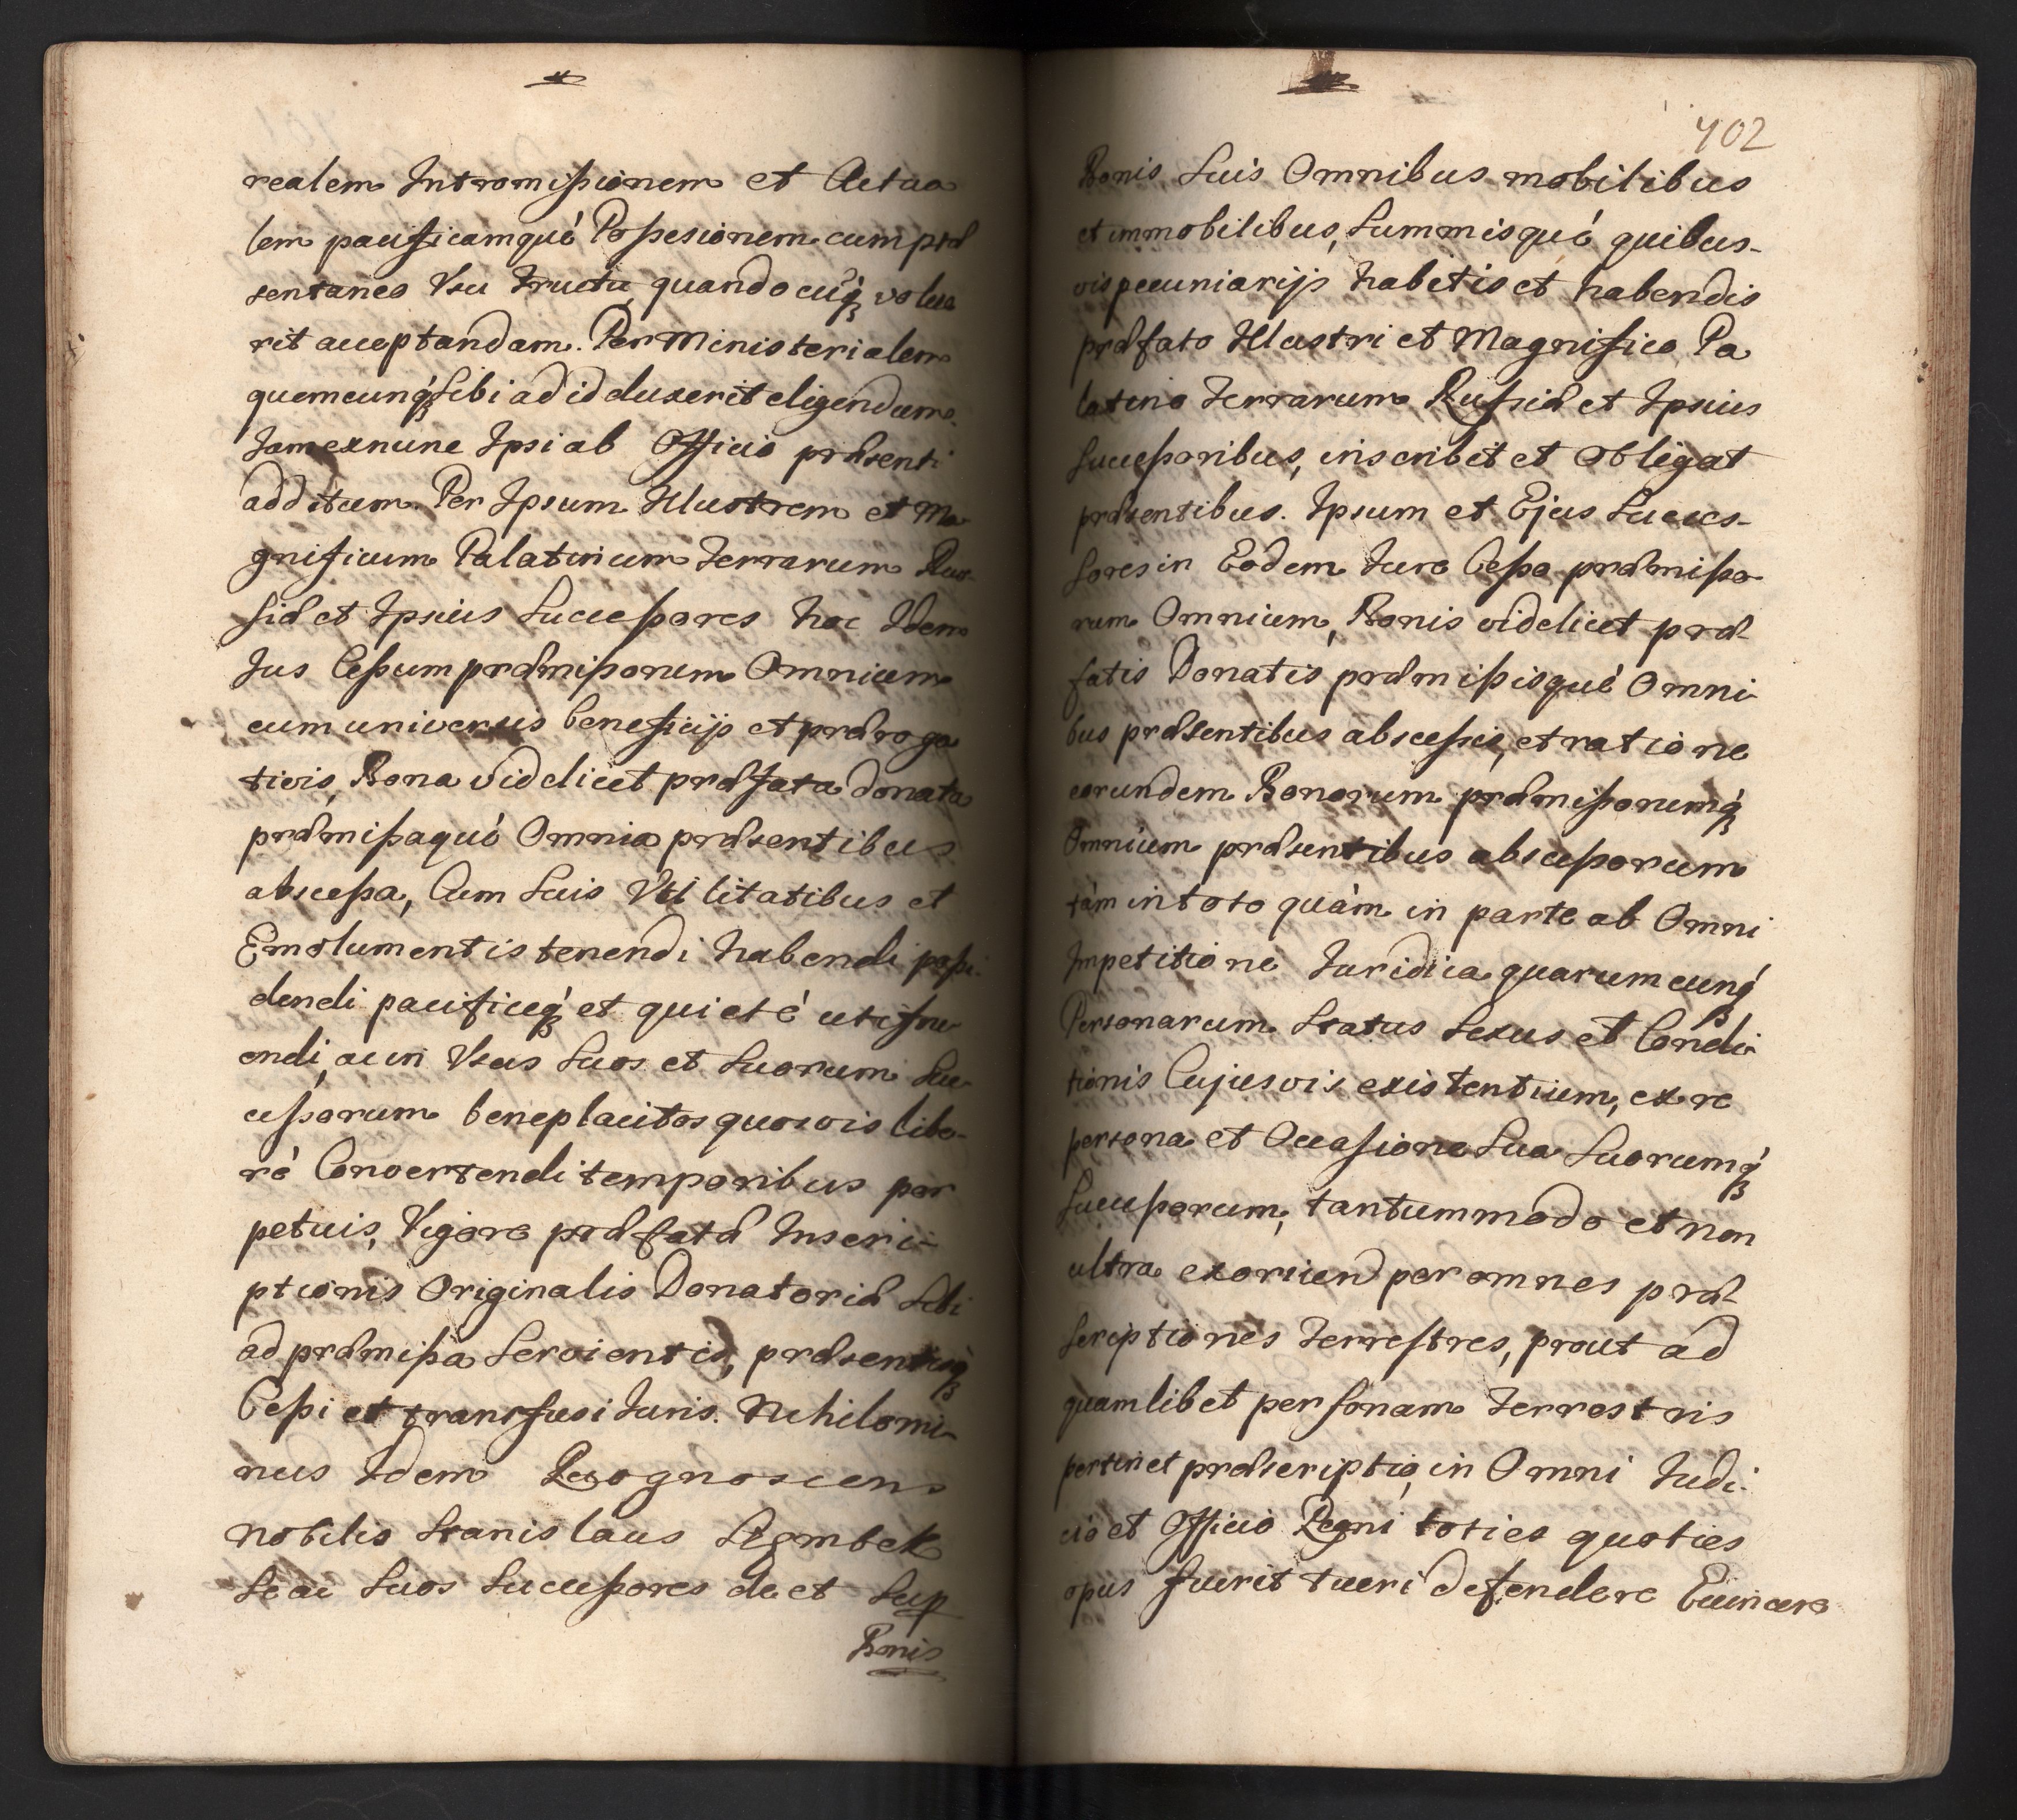 realem Intromissionem et Actua
lem pacificamquè Possesionem cum præ
sentaneo Usu Fructu quandocuq́ȝ volue
rit acceptandam. Per Ministerialem
quemcunq́ȝ Sibi ad id duxerit eligendum.
Iam exnunc Ipsi ab Officio præsenti
additum. Per Ipsum Illustrem et Ma
gnificum Palatinum Terrarum Rus
siæ et Ipsius Successores hoc Idem
Ius Cessum præmissorum Omnium
cum universis beneficijs et præroga
tivis, Bona videlicet præfata donata
præmissaquè Omnia præsentibus
abscessa, Cum Suis Utilitatibus et
Emolumentis tenendi habendi possi
dendi pacificeq́ȝ et quietè utifru
endi, ac in Usus Suos et Suorum Suc
cessorum beneplacitos quosvis libe-
rè Convertendi temporibus per
petuis, Vigore præfatæ Inscri-
ptionis Originalis Donatoriæ Sibi
ad præmissa Servientis, præsentisq́ȝ
Cessi et transfusi Iuris. Nihilomi-
nus Idem Recognoscens
nobilis Stanislaus Szembek
Se ac Suos Successores de et Sup
Bonis
402
Bonis Suis Omnibus mobilibus
et immobilibus, Summisquè quibus-
vis pecuniarijs habitis et habendis
præfato Illustri et Magnifico Pa
latino Terrarum Russiæ et Ipsius
Successoribus, inscribit et Obligat
præsentibus. Ipsum et Ejus Succes-
sores in Eodem Iure Cesso præmisso
rum Omnium, Bonis videlicet præ
fatis Donatis præmissisquè Omni
bus præsentibus abscessis, et ratione
eorundem Bonorum præmissorumq́ȝ
Omnium præsentibus abscessorum
tàm in toto quàm in parte ab Omni
Impetitione Iuridica quarumcunq́ȝ
Personarum Status Sexus et Condi
tionis Cujusvis existentium, ex re
persona et Occasione Sua Suorumq́ȝ
Successorum, tantummodo et non
ultra exoriend per omnes præ
scriptiones Terrestres, prout ad
quamlibet personam Terrestris
pertinet præscriptio, in Omni Iudi-
cio et Officio Regni toties quoties
opus fuerit tueri defendere Evincere